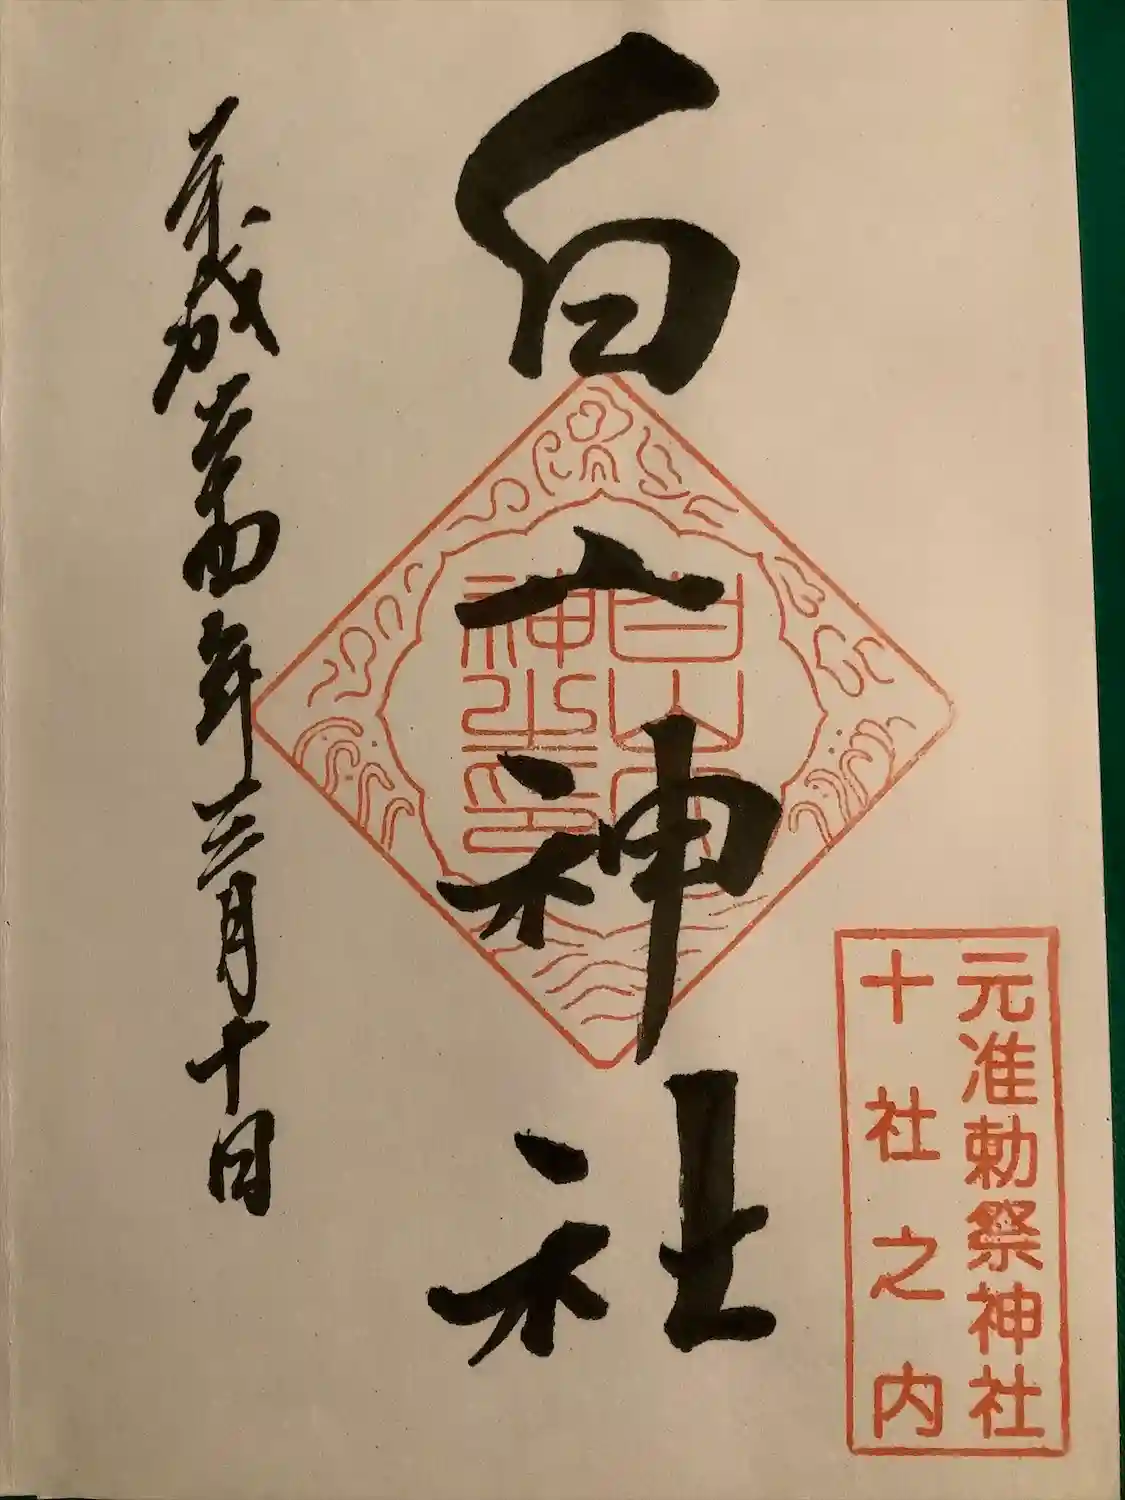 元准勅祭神社
十社之内
白山神社
平成廿四年三月十日